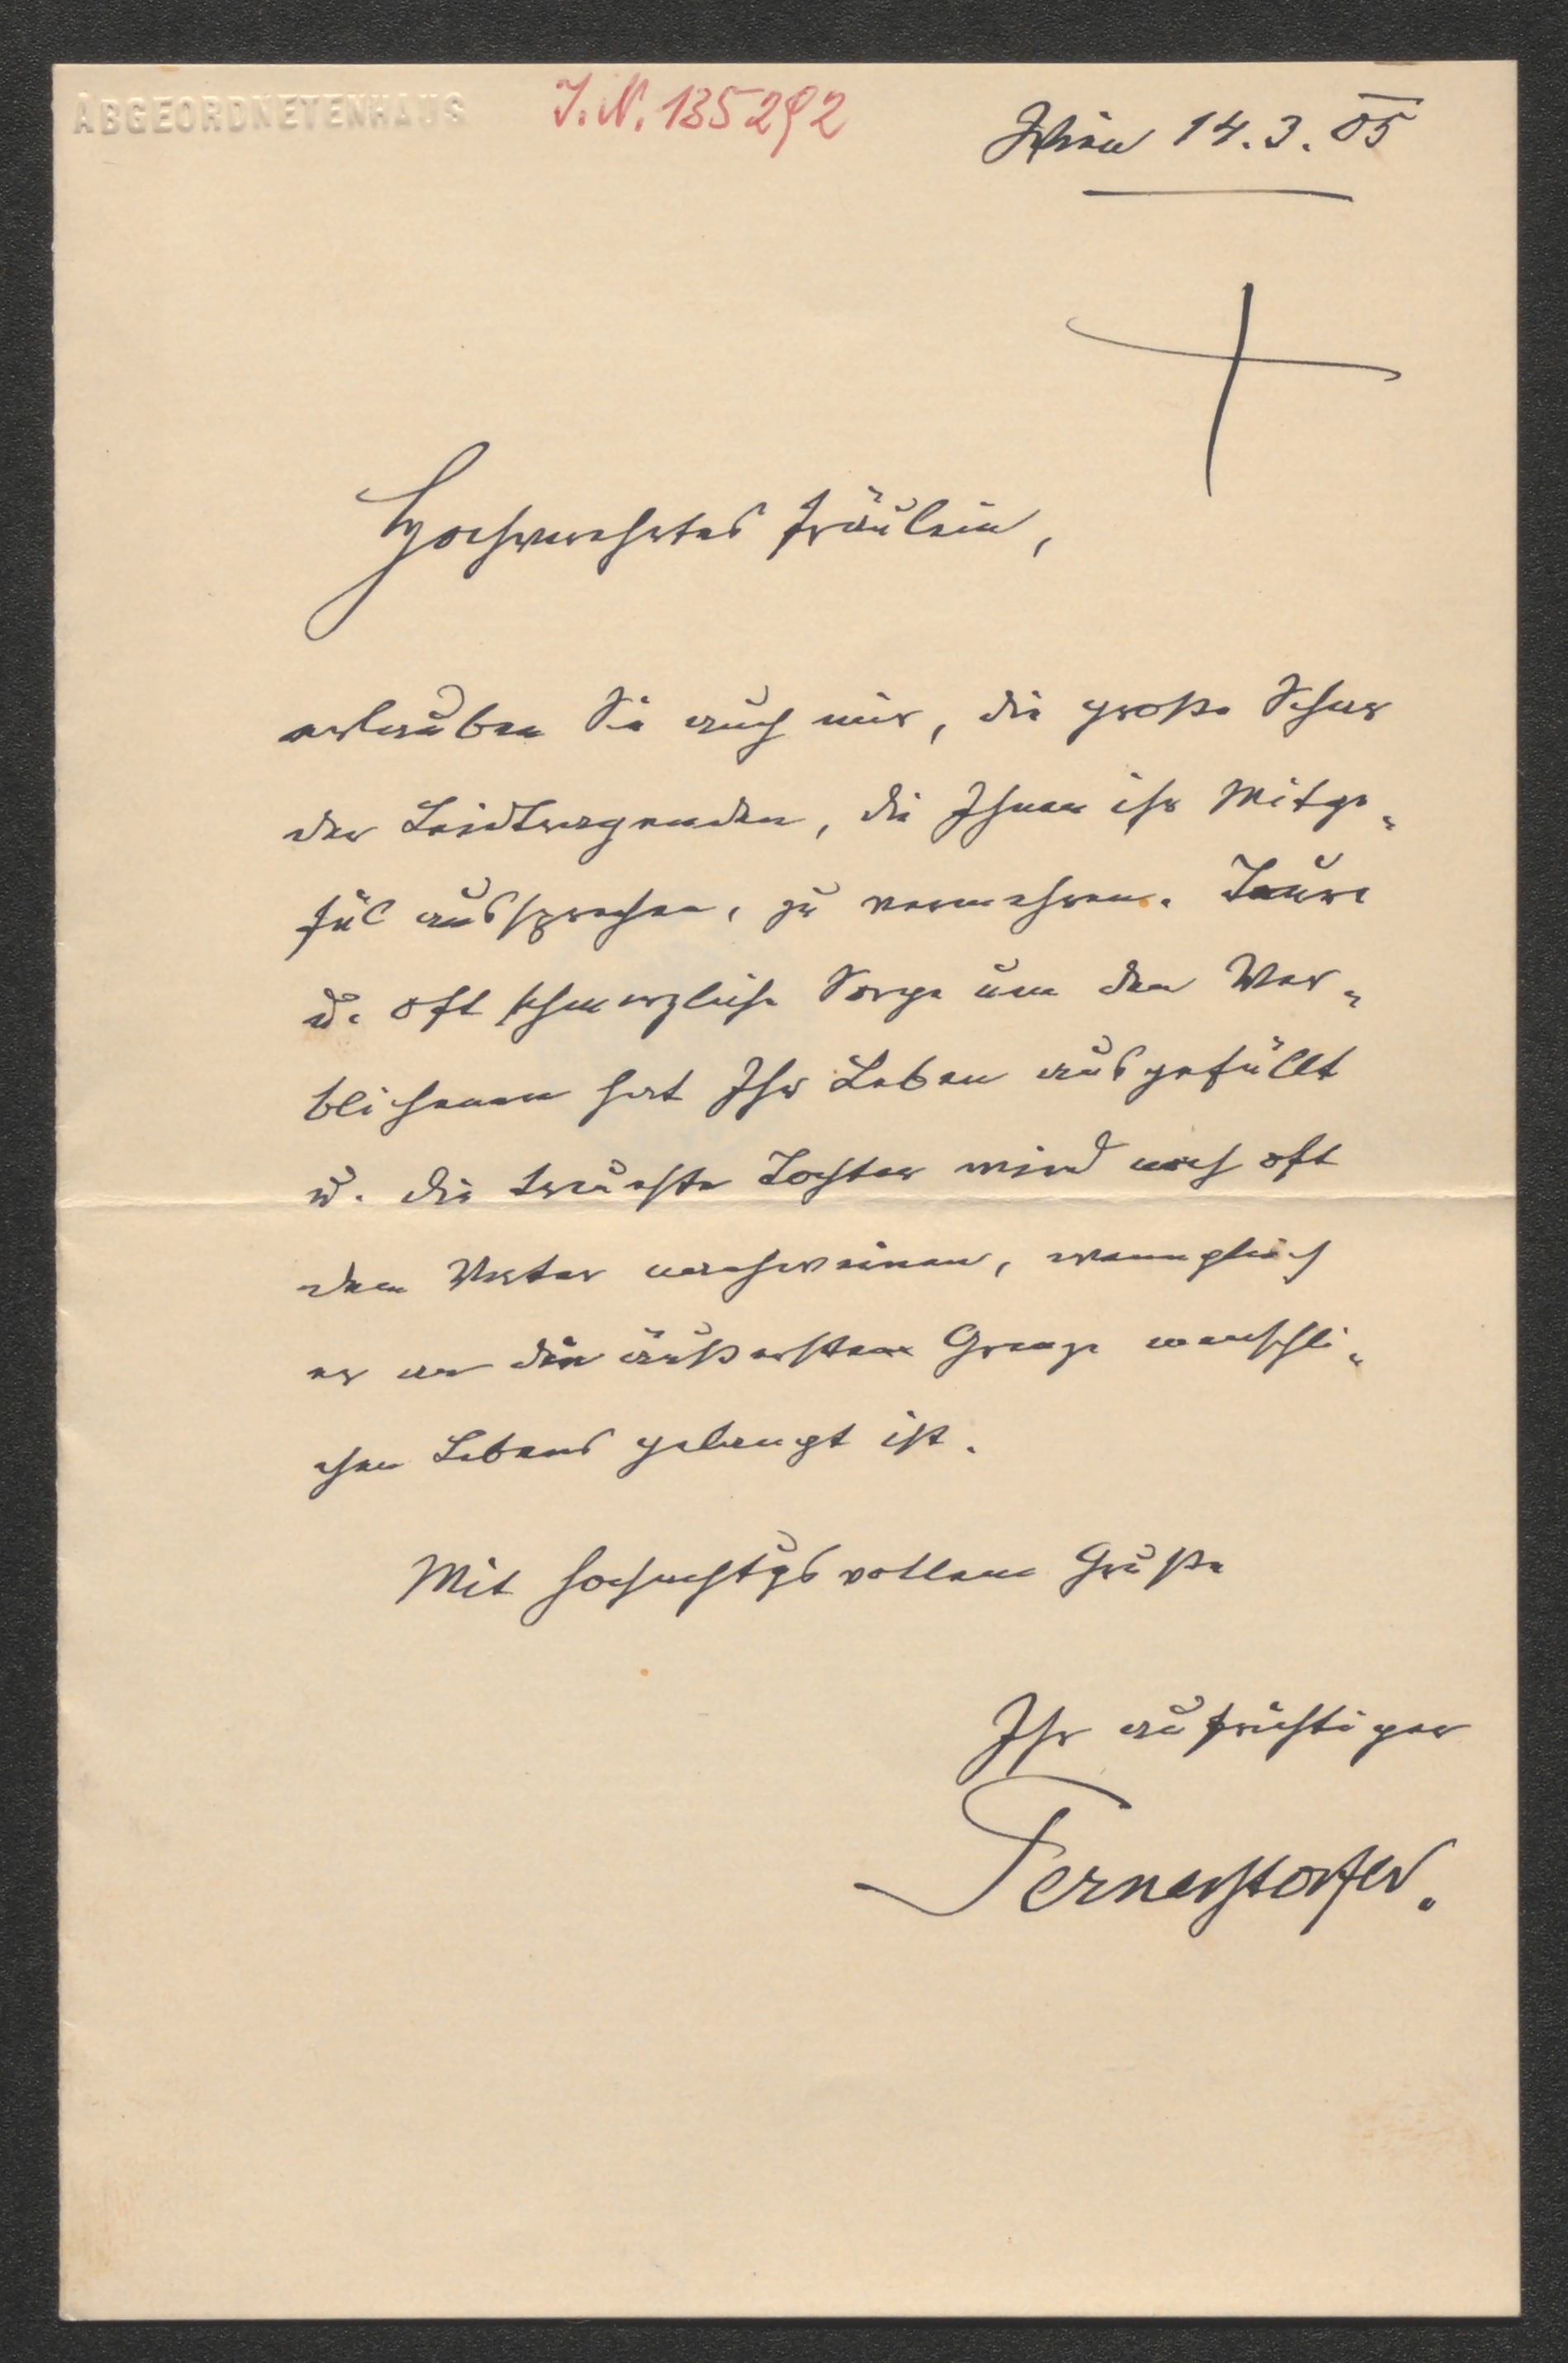 ABGEORDNETENHAUS
I. N. 135292
Wien 14. 3. 05
Hochverehrtes Fräulein,
erlauben Sie auch mir, die große Schar
der Leidtragenden, die Ihnen ihr Mitge-
fül aussprechen, zu vermehren. Teure
u. oft schmerzliche Sorge um den Ver-
blichenen hat Ihr Leben ausgefüllt
u. die treueste Tochter wird noch oft
dem Vater nachweinen, wenngleich
er an die äußerste Grenze menschli-
chen Lebens gelangt ist.
Mit hochachtgsvollem Gruße
Ihr aufrichtiger
Pernerstorfer.